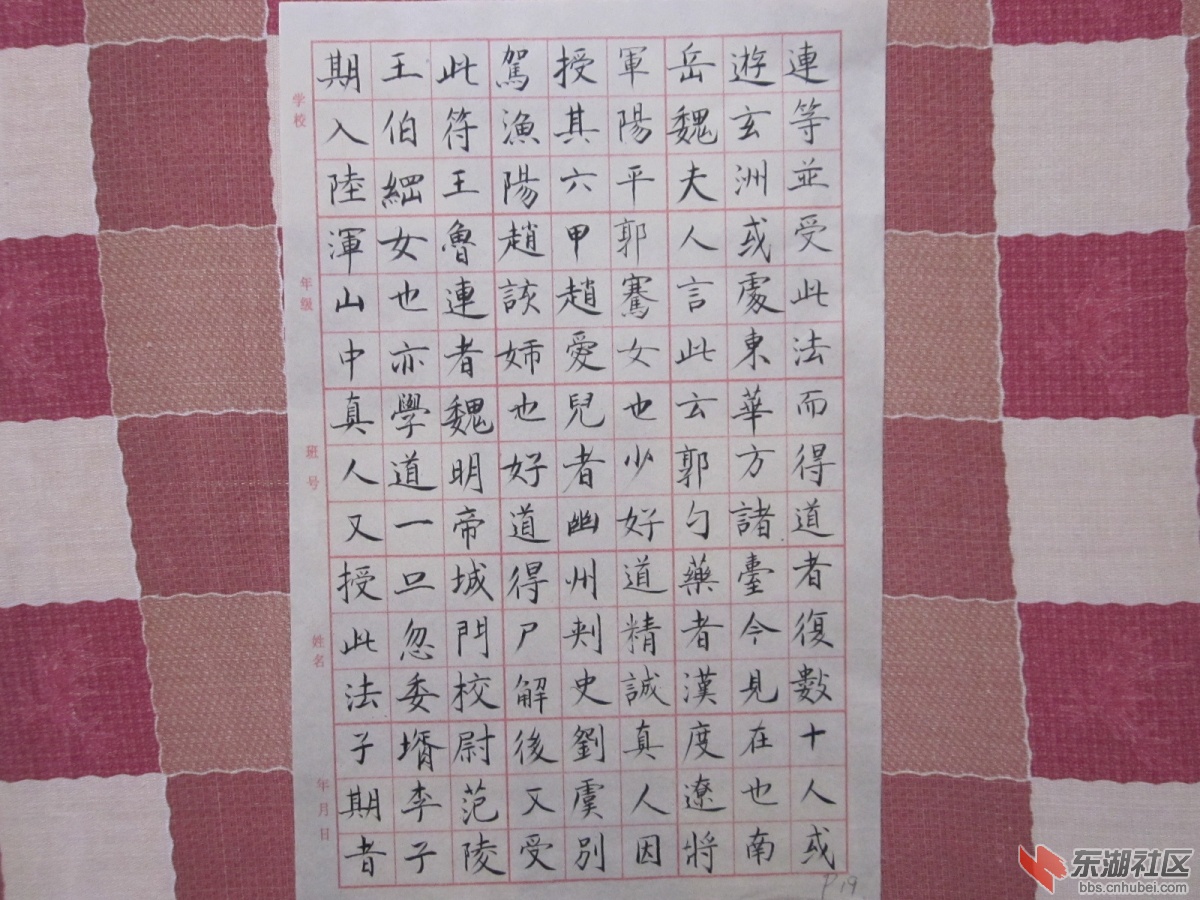 連等並受此法而得道者復數十人或
遊玄洲或處東華方諸臺今見在也南
岳魏夫人言此云郭勺藥者漢度遼將
軍陽平郭騫女也少好道精誠真人因
授其六甲趙愛兒者幽州刾史劉虞別
駕漁陽趙該姉也好道得尸解後又受
此符王魯連者魏明帝城門校尉范陵
王伯綱女也亦學道一旦忽委壻李子
期入陸渾山中真人又授此法子期者
学校
年级
班号
姓名
年月日
P19
东湖社区
bbs.cnhubei.com